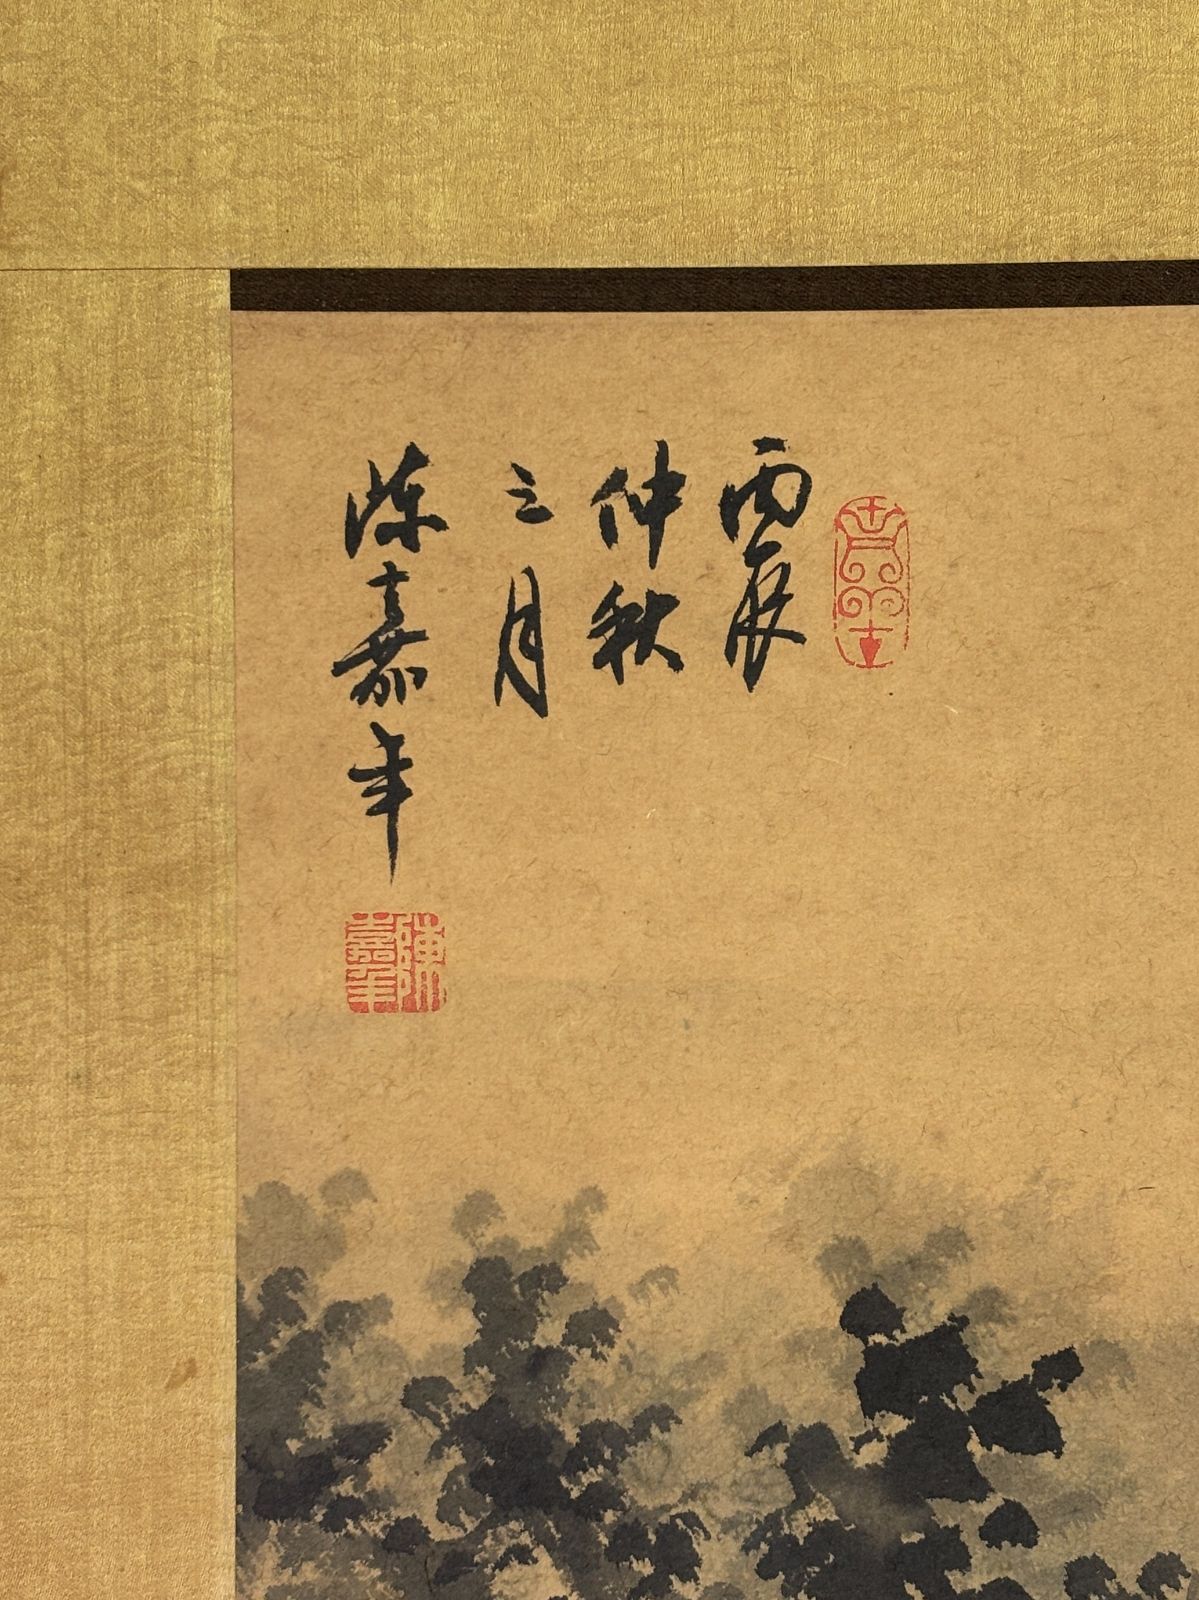 丙辰
仲秋
之月
陳嘉年
陳嘉年